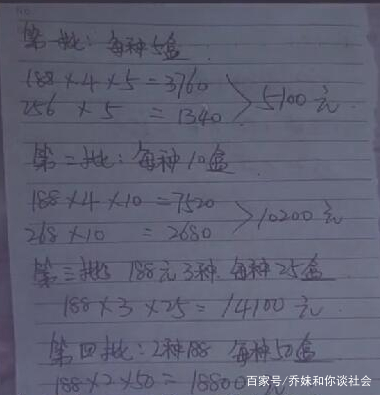 第一批：每种5盒
188×4×5=3760
256×5=1340
5100元
第二批：每种10盒
188×4×10=7520
268×10=2680
10200元
第三批 188元3种 每种25盒
188×3×25=14100元
第四批：2种188 每种50盒
188×2×50=18800
百家号/乔妹和你谈社会